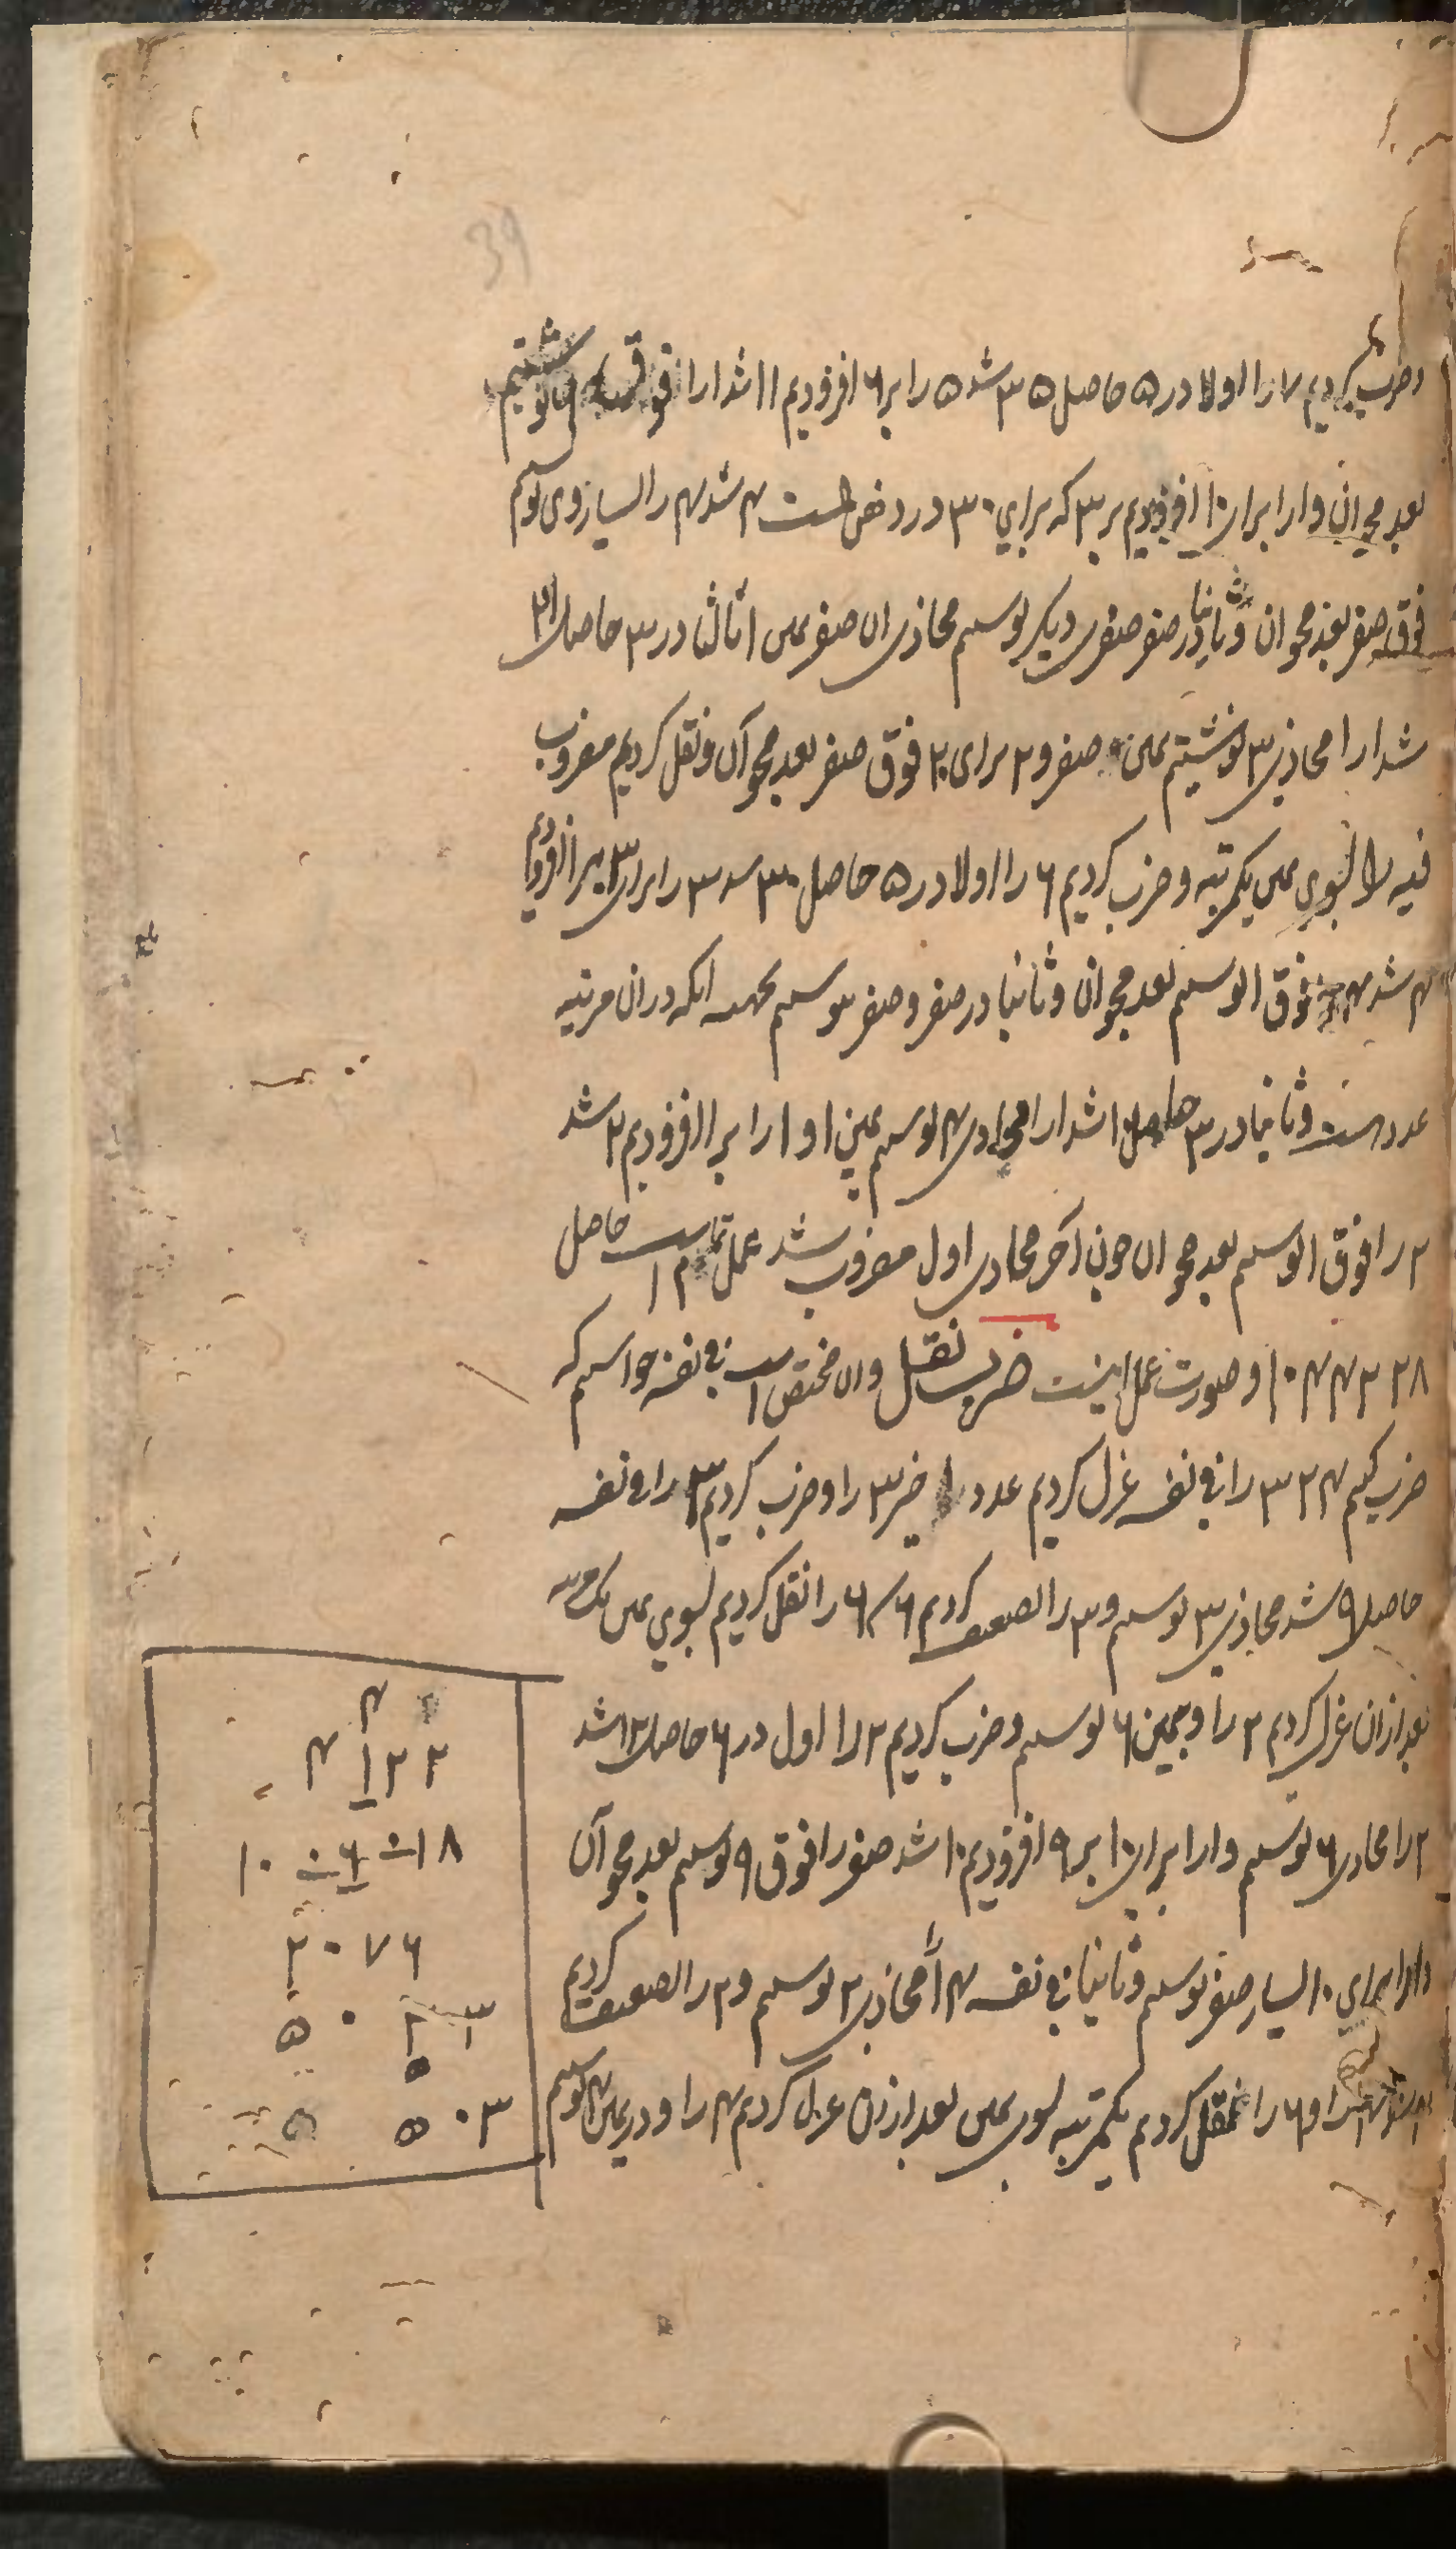 39
و ضرب کردیم ۷ را اولا در ۵ حاصل ۳۵ شد ۵ را بر ۶ افزودیم ۱۱ شد ۱ را فوق نوشتیم
بعد محو ان و ۱ را برای ۱۰ افزودیم بر ۳ که برای ۳۰ در ذهن است ۴ شد ۴ را الیسار وی نوسیم
فوق صفر بعد محو ان و ثانیا در صفر صفری دیگر نوسیم محاذی ان صفر یمین ۱ ثالثا در ۳ حاصل ۲۱
شد ۱ را محاذی ۳ نوشتیم یمین صفر و ۲ برای ۲۰ فوق صفر بعد محو آن و نقل کردیم مضروب
فیه را بسوی یمین یکمرتبه و ضرب کردیم ۶ را اولا در ۵ حاصل ۳۰ شد ۳ را برای ۳۰ بر ۱ افزودیم
۴ شد ۴ فوق ۱ نوسیم بعد محو ان و ثانیا در صفر و صفر نوسیم بجهت انکه در ان مرتبه
عدد است و ثانیا در ۳ حاصل ۱۸ شد ۸ را محاذی ۳ نوسیم یمین ۱ و ۱ را بر ۱ افزودیم ۲ شد
۲ را فوق ۱ نوسیم بعد محو ان چون آخر محاذی اول مضروب شد عمل تمام است حاصل
۱۰۴۴۳۲۸ و صورت عمل اینست ضرب نقل وان مختص است فی نفسه خواسیم که
ضرب کنیم ۳۲۴ را فی نفسه عزل کردیم عدد اخیر ۳ را و ضرب کردیم ۳ را فی نفسه
حاصل ۹ شد محاذی ۳ نوسیم و ۳ را تضعیف کردیم ۶ ۶ را نقل کردیم بسوی یمین یک مرتبه
بعد ازان عزل کردیم ۲ را و بیمین ۶ نوسیم و ضرب کردیم ۲ را اول در ۶ حاصل ۱۲ شد
۲ را محاذی ۶ نوسیم و ۱ را برای ۱۰ بر ۹ افزودیم ۱۰ شد صفر را فوق ۹ نوسیم بعد محو آن
و ۱ را برای ۱۰ الیسار صفر نوسیم و ثانیا فی نفسه ۴ را محاذی ۲ نوسیم و ۲ را تضعیف کردیم
۴ را و ۶ را نقل کردیم یکمرتبه بسوی یمین بعد ازان عزل کردیم ۴ را و در یمین ۴ نوسیم
۴
۴ ۱ ۲ ۲
۱۰ ۰ ۶ ۰ ۱ ۸
۲ ۰ ۷ ۶
۵ ۰ ۲ ۳
۵
۵ ۵ ۰ ۳